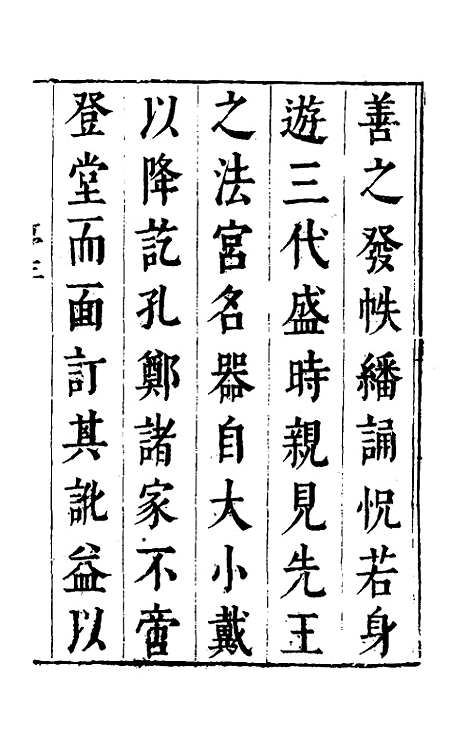 善之發帙繙誦怳若身
遊三代盛時親見先王
之法宮名器自大小戴
以降訖孔鄭諸家不啻
登堂而面訂其訛益以